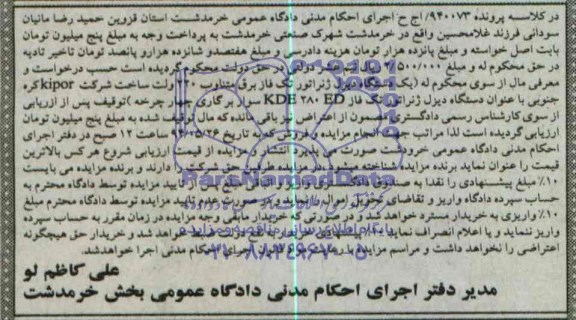 در کلاسه پرونده ۹۴۰۰۷۳/اج ح اجرای احکام مدنی دادگاه عمومی خرمدشت استان قزوین حمید رضا مانیان
سودانی فرزند غلامحسین واقع در خرمدشت شهرک صنعتی خرمدشت به پرداخت وجه به مبلغ پنج میلیون تومان
بابت اصل خواسته و مبلغ پانزده هزار تومان هزینه دادرسی و مبلغ هفتصدو شانزده هزارو پانصد تومان تاخیر تادیه
در حق محکوم له و مبلغ دولتی در حق دولت محکوم گردیده است حسب درخواست و
معرفی مال از سوی محکوم له (یک دستگاه دیزل ژنراتور تک فاز برق متناوب ولت ساخت شرکت kipor کره
جنوبی با عنوان دستگاه دیزل ژنراتور تک فاز KDE ۲۸۰ ED سوار بر گاری چهار چرخه) توقیف پس از ارزیابی
از سوی کارشناس رسمی دادگستری و مصون از اعتراض نیز باقی مانده که مال توقیف شده به مبلغ پنج میلیون تومان
ارزیابی گردیده است لذا مراتب جهت انجام مزایده و فروش که به تاریخ ساعت ۱۲ صبح در دفتر اجرای
احکام مدنی دادگاه عمومی خرمدشت صورت می پذیرد انتشار و مزایده از قیمت ارزیابی شروع هر کس بالاترین
قیمت را عنوان نماید برنده مزایده شناخته میشود در مزایده طرفین حق شرکت را دارند و برنده مزایده می بایست
۱۰٪ مبلغ پیشنهادی را نقدا به صندوق دادگستری واریز و الباقی مبلغ پس از تایید مزایده توسط دادگاه محترم به
حساب سپرده دادگاه واریز و تقاضای تحویل اموال را نماید و در صورت عدم تایید مزایده توسط دادگاه محترم مبلغ
۱۰٪ واریزی به خریدار مسترد خواهد شد و در صورتی که خریدار مابقی وجه مزایده در زمان مقرر به حساب سپرده
واریز ننماید و یا اعلام انصراف نماید پیشنهادی دولت ضبط خواهد شد و خریدار حق هیچگونه
اعتراضی را نخواهد داشت و مراسم مزایده با رعایت اجرای احکام مدنی اجرا خواهدشد.
علی کاظم لو
مدیر دفتر اجرای احکام مدنی دادگاه عمومی بخش خرمدشت
ParsNamadData